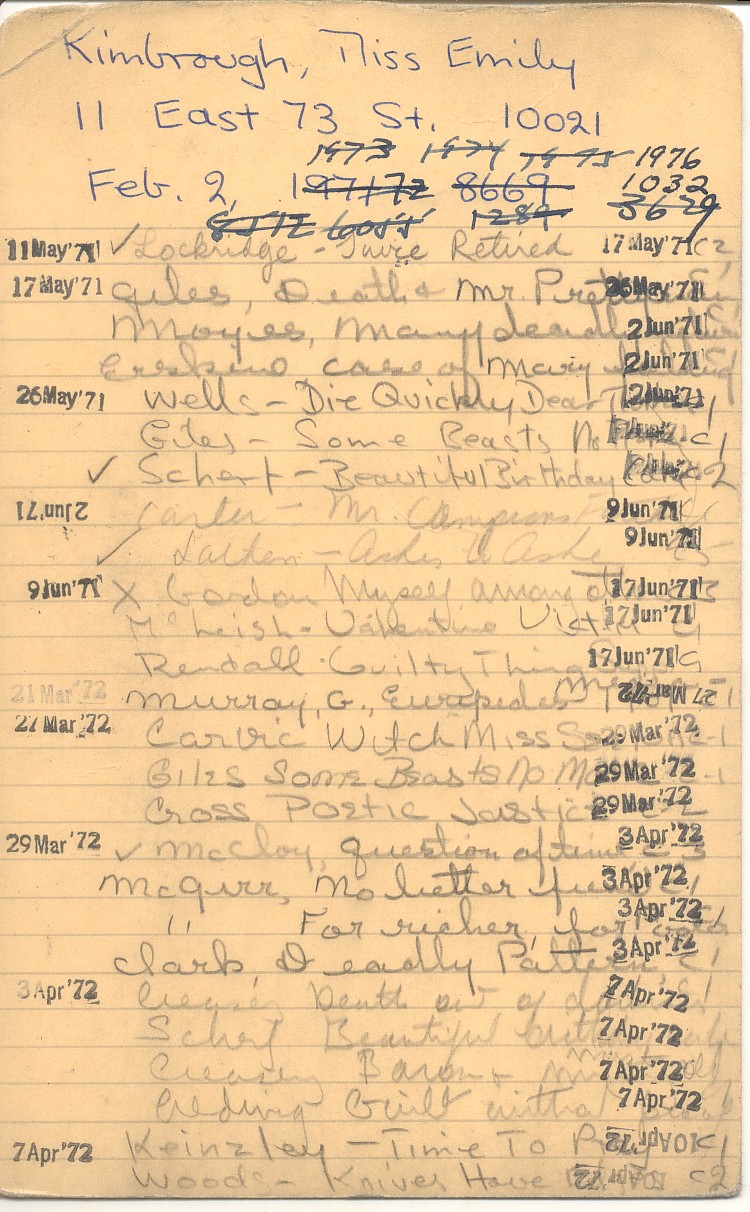 Kimbrough, Miss Emily
11 East 73 St. 10021
1973 1974 1975 1976
Feb. 2, 197172 8669 1032
6055 1289 3629
11 May '71 ✓ Lockridge - Twice Retired 17 May '71 C2
17 May '71 Giles, Death & Mr. 26 May '71
Moyes, Many deadly 2 Jun '71
Erskine case of Mary 2 Jun '71
26 May '71 Wells - Die Quickly Dear
Giles - Some Beasts No C1
✓ Scherf - Beautiful Birthday 2
2 Jun. 71 Carter - Mr Campions 9 Jun '71
✓ - Ashes to Ashes 9 Jun '71
9 Jun '71 X Gordon Myself among 17 Jun '71
McLeish - Valentine Victim 17 Jun '71
Rendall - Guilty Thing 17 Jun '71
21 Mar '72 Murray, G., Euripedes Medea 27 Mar '72
27 Mar '72 Carvic Witch Miss 29 Mar '72 -1
Giles Some Beasts No 29 Mar '72 -1
Cross Poetic Justice 29 Mar '72
29 Mar '72 ✓ McCloy, Question of time 3 Apr '72
McGurr, No better 3 Apr '72 C1
" For richer, for 3 Apr '72
Clark, Deadly Pattern 3 Apr '72 C1
3 Apr '72 Creasey Death out of 7 Apr '72
Scherf Beautiful 7 Apr '72
Creasey Baron & 7 Apr '72
Guilt 7 Apr '72
7 Apr '72 Keinzley - Time To 10 Apr '72 C1
Woods - Knives Have C2